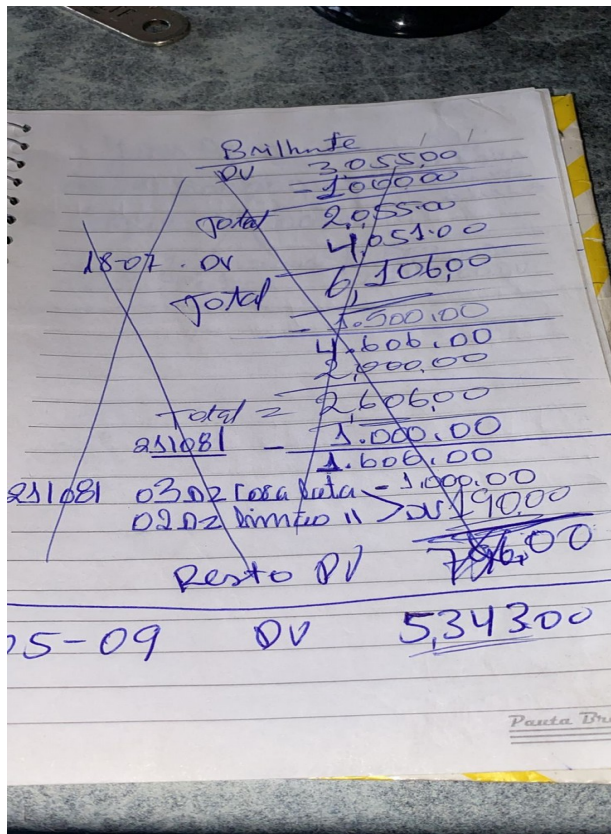 Brilhante
DV 3,055,00
- 1,000,00
Total 2,055.00
18-07. DV 4,051.00
Total 6,106,00
- 1.500.00
4.606.00
2,000.00
Total = 2,606,00
211081 - 1.000.00
1.606.00
211081 03 Dz Coca Lata - 1,000.00
02 Dz " > DV 190.00
Resto DV
05-09 DV 5,343.00
Pauta Br